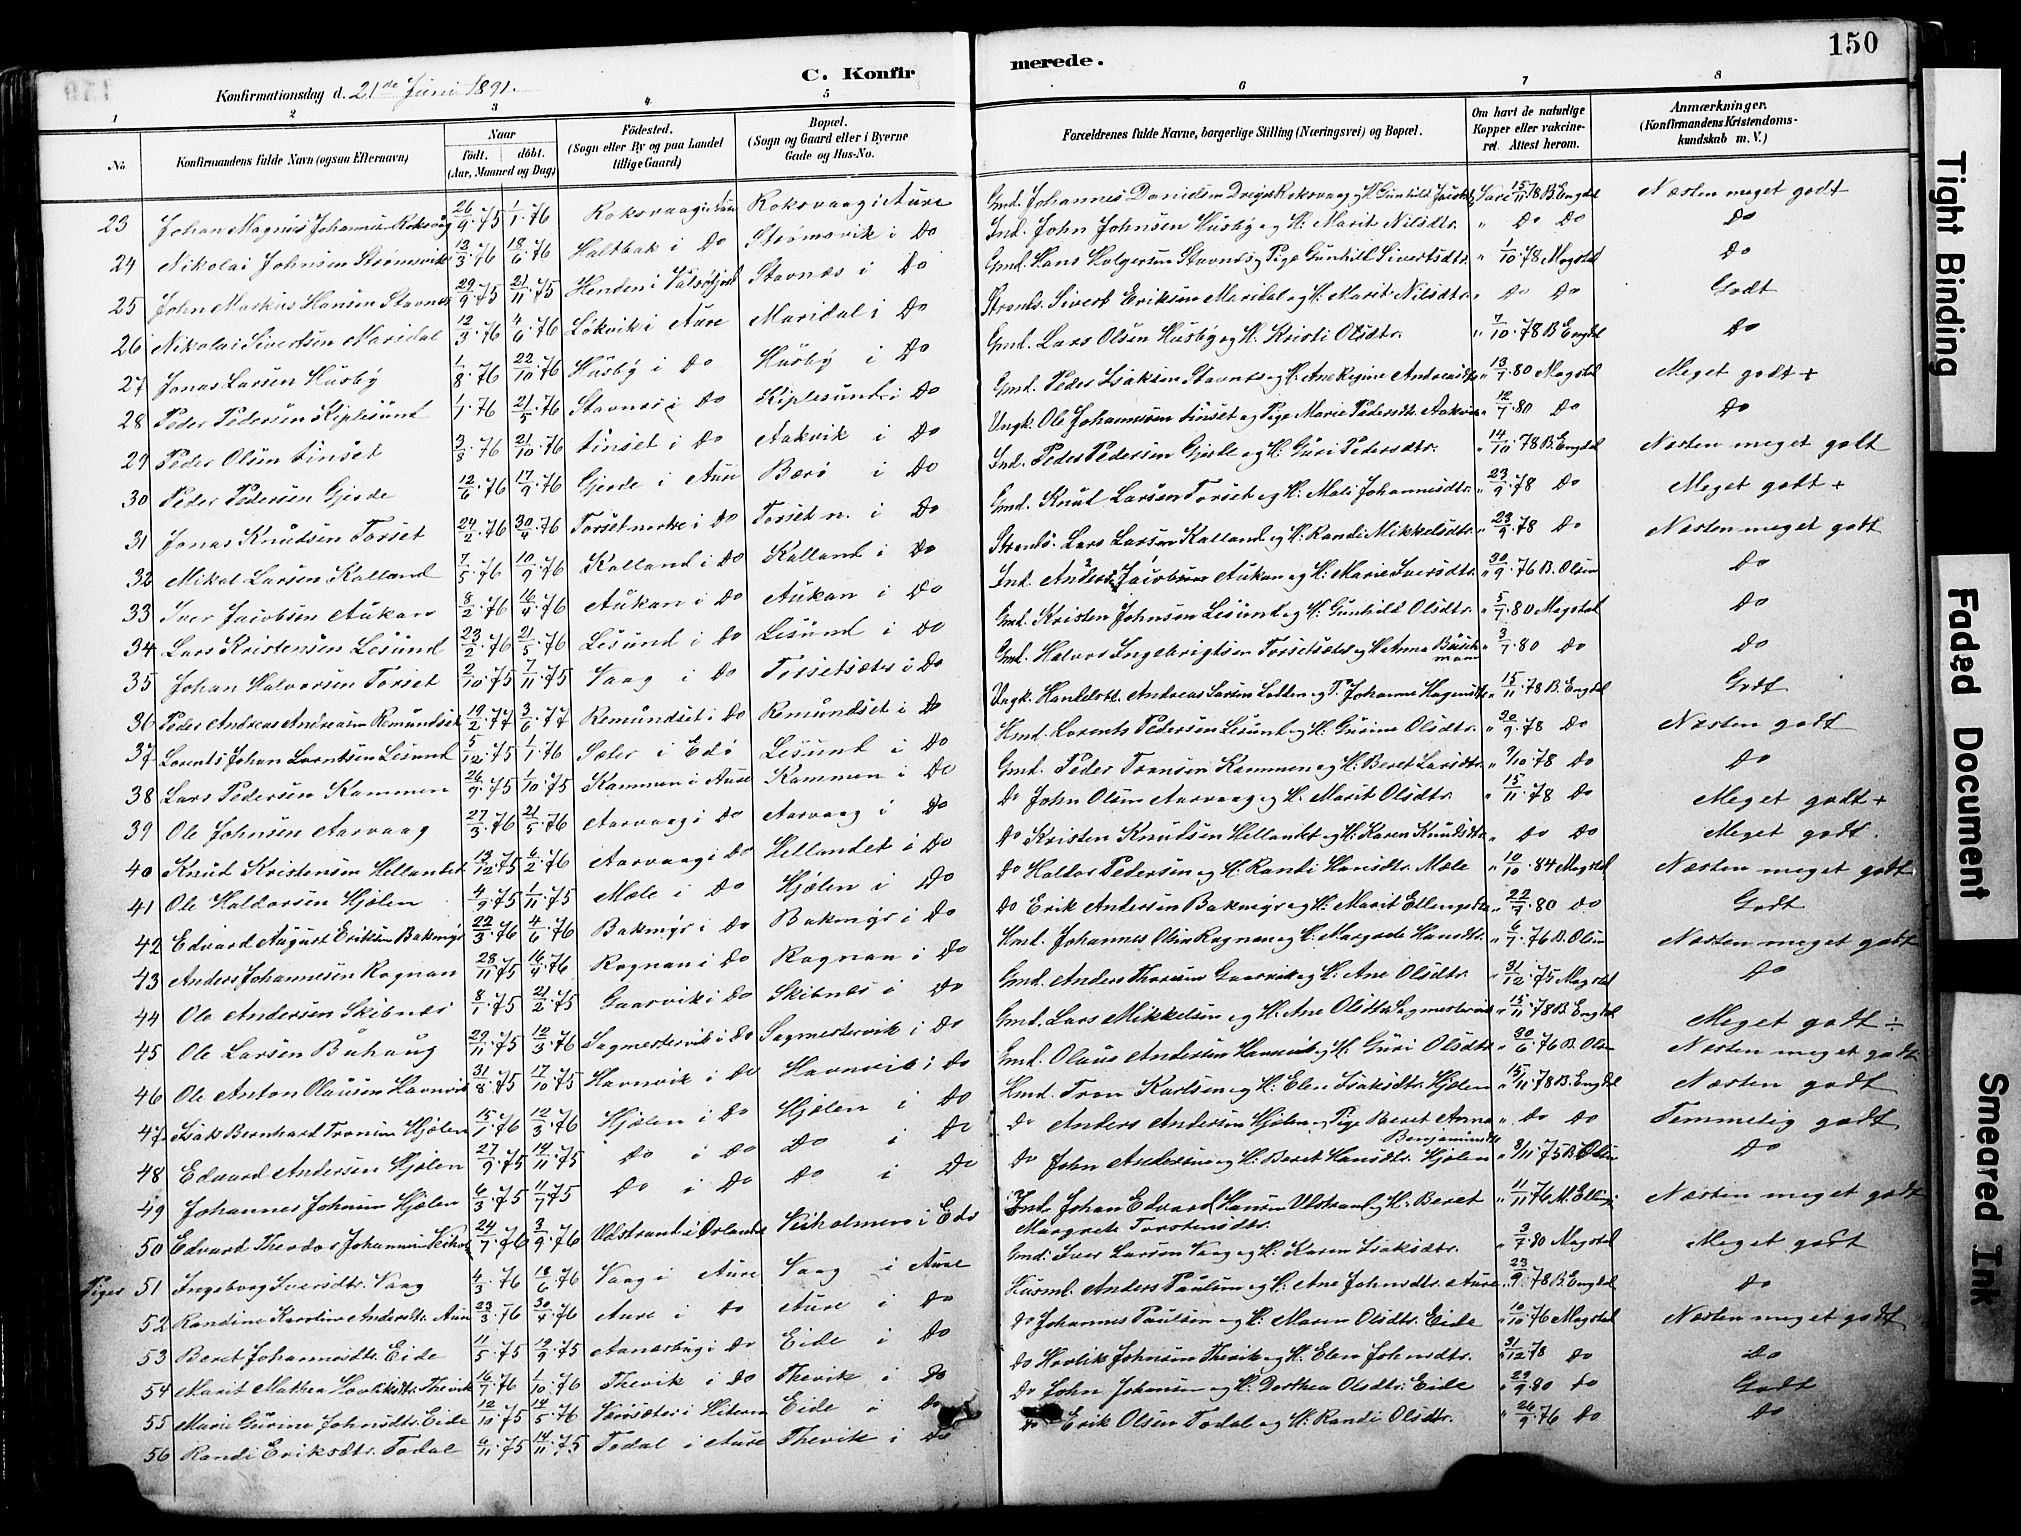 150
C. Konfirmerede.
Konfirmationsdag d. 21de Juni 1891.
1 2 3 4 5 6 7 8
No
Konfirmandens fulde Navn (ogsaa Efternavn)
Naar
födt. döbt.
(Aar, Maaned og Dag)
Födested.
(Sogn eller By og paa Landet
tillige Gaard)
Bopæl.
(Sogn og Gaard eller i Byerne
Gade og Hus-No.
Forældrenes fulde Navne, borgerlige Stilling (Næringsvei) og Bopæl.
Om havt de naturlige
Kopper eller vakcine-
ret. Attest herom.
Anmærkninger.
(Konfirmandens Kristendoms-
kundskab m. V.)
23 Johan Magnus Johannesen Roksvaag 26/9.75 1/1.76 Roksvaag i Aure Roksvaag i Aure Gmd. Johannes Danielsen Roksvaag og H. Gunhild 15/11.78 B. Engdal Næsten meget godt
24 Nikolai Johnsen Strømsvik 12/3.76 18/6.76 Holtbak i Do Strømsvik i Do Ind. John Johnsen Husby og H. Marit Nilsdtr. " Do Do Do
25 John Markus Hansen Stavnes 29/9.75 21/11.75 Henden i Valsøfjord Stavnes i Do Gmd. Hans Holgersen Stavnes og Pige Gunhild Sivertsdtr. " 1/10.78 Magstal Do
26 Nikolai Sivertsen Maridal 12/3.76 4/6.76 Lökvik i Aure Maridal i Do Strands. Sivert Eriksen Maridal og H. Marit Nilsdtr. " Do Do Godt
27 Jonas Larsen Husby 1/8.76 22/10.76 Husby i Do Husby i Do Gmd. Lars Olsen Husby og H. Kristi Olsdtr. " 7/10.78 B. Engdal Do
28 Peder Pedersen Kiplesund 1/1.76 21/5.76 Stavnes i Do Kiplesund i Do Gmd. Peder Isaksen Stavnes og H. Ane Regine Andreasdtr. " 13/7.80 Magstal Meget godt +
29 Peder Olsen Tinset 3/8.76 21/10.76 Tinset i Do Aakvik i Do Ungk. Ole Johannesen Tinset og Pige Marie Pedersdtr. Aakvik " 12/7.80 Do Do
30 Peder Pedersen Gjerde 12/6.76 17/9.76 Gjerde i Aure Bærø i Do Ind. Peder Pedersen Gjerde og H. Guri Pedersdtr. " 14/10.78 B. Engdal Næsten meget godt
31 Jonas Knudsen Torset 24/2.76 30/4.76 Torset nordre i Do Torset n. i Do Gmd. Knud Larsen Torset og H. Mali Johannesdtr. " 23/9.78 Do Meget godt +
32 Mikal Larsen Kalland 7/5.76 10/9.76 Kalland i Do Kalland i Do Strands. Lars Larsen Kalland og H. Randi Mikkelsdtr. " 23/9.78 Do Næsten meget godt
33 Iver Jacobsen Aukan 8/2.76 16/4.76 Aukan i Do Aukan i Do Ind. Anders Jacobsen Aukan og H. Marie Iversdtr. " 30/9.76 B. Olsen Do
34 Lars Kristensen Lesund 23/2.76 21/5.76 Lesund i Do Lesund i Do Gmd. Kristen Johnsen Lesund og H. Gunhild Olsdtr. " 5/7.80 Magstal Do
35 Johan Halvorsen Torset 2/10.75 7/11.75 Vaag i Do Torsetsæter i Do Gmd. Halvor Ingebrigtsen Torsetsæter og H. Anna Buschmann " 3/7.80 Do Do
36 Peder Andreas Andreasen Remundset 19/2.77 3/6.77 Remundset i Do Remundset i Do Ungk. Handelsbet. Andreas Larsen og P. Johanne " 15/11.78 B. Engdal Godt
37 Lorents Johan Lorentsen Lesund 5/12.75 1/1.76 Sæter i Edö Lesund i Do Hmd. Lorents Pedersen Lesund og H. Gurine Olsdtr. " 30/9.78 Do Næsten godt
38 Lars Pedersen Kammen 26/9.75 1/10.75 Kammen i Aure Kammen i Do Gmd. Peder Tronsen Kammen og H. Beret Larsdtr. " 9/10.78 Do Do
39 Ole Johnsen Aarvaag 27/3.76 21/5.76 Aarvaag i Do Aarvaag i Do Do John Olsen Aarvaag og H. Marit Olsdtr. " 15/11.78 Do Meget godt +
40 Knud Kristensen Hellandet 13/12.75 6/2.76 Aarvaag i Do Hellandet i Do Do Kristen Knudsen Hellandet og H. Karen Knudsdtr. " Do Do Meget godt.
41 Ole Haldorsen Hjølen 4/9.75 1/11.75 Mæle i Do Hjølen i Do Do Haldor Pedersen og H. Randi Hansdtr. Mæle " 10/10.84 Magstal Næsten meget godt
42 Edvard August Eriksen Bakmyr 22/3.76 4/6.76 Bakmyr i Do Bakmyr i Do Do Erik Andersen Bakmyr og H. Marit Ellingsdtr. " 22/7.80 Do Godt
43 Anders Johannesen Rognan 28/11.75 16/4.76 Rognan i Do Rognan i Do Hmd. Johannes Olsen Rognan og H. Margrete Hansdtr. " 6/7.76 B. Olsen Næsten meget godt
44 Ole Andersen Skibnes 8/1.75 21/2.75 Gaasvik i Do Skibnes i Do Gmd. Anders Thoresen Gaasvik og H. Ane Olsdtr. " 31/12.75 Magstal Do
45 Ole Larsen Buhaug 29/11.75 12/3.76 Sagmestervik i Do Sagmestervik i Do Gmd. Lars Mikkelsen og H. Ane Olsdtr. Sagmestervik " 15/11.78 B. Engdal Meget godt ÷
46 Ole Anton Olausen Havnvik 31/8.75 17/10.75 Havnvik i Do Havnvik i Do Gmd. Olaus Andersen Havnvik og H. Guri Olsdtr. " 30/6.76 B. Olsen Næsten meget godt
47 Isak Bernhard Tronsen Hjølen 15/1.76 12/3.76 Hjølen i Do Hjølen i Do Hmd. Tron Karlsen og H. Elen Isaksdtr. Hjølen " 15/11.78 B. Engdal Næsten godt
48 Edvard Andersen Hjølen 27/9.75 14/11.75 Do i Do Do i Do Do Anders Andersen Hjølen og Pige Beret Anna Benjaminsdtr. " Do Do Temmelig godt
49 Johannes Johnsen Hjølen 6/3.75 11/7.75 Do i Do Do i Do Do John Andersen og H. Beret Hansdtr. Hjølen " 8/11.75 B. Olsen Do
50 Edvard Theodor Johannsen Veiholm 24/7.76 3/9.76 Udstrand i Ørlandet Veiholmen i Edö Ind. Johan Edvard Hansen Udstrand og H. Beret
Margrete Torstensdtr. " 11/11.76 M. Elling Næsten meget godt
Piger 51 Ingeborg Iversdtr. Vaag 4/3.76 18/6.76 Vaag i Aure Vaag i Aure Gmd. Iver Larsen Vaag og H. Karen Isaksdtr. " 3/7.80 Magstal Meget godt
52 Randine Karoline Andersdtr. Aure 23/3.76 30/4.76 Aure i Do Aure i Do Husmd. Anders Paulsen og H. Ane Johnsdtr. Aure " 23/9.78 B. Engdal Do
53 Beret Johannesdtr. Eide 11/5.75 19/9.75 i Do Eide i Do Do Johannes Paulsen og H. Maren Olsdtr. Eide " 10/10.76 Magstal Næsten meget godt
54 Marit Mathea Hovliksdtr. Thevik 16/7.76 1/10.76 Thevik i Do Thevik i Do Do Hovlik Johnsen Thevik og H. Elen Johnsdtr. " 31/12.78 Do Do
55 Marie Gurine Johnsdtr. Eide 12/10.75 14/5.76 i Hiteren Eide i Do Do John Johnsen og H. Dorthea Olsdtr. Eide " 29/9.80 Do Godt
56 Randi Eriksdtr. Todal 6/11.75 14/11.75 Todal i Aure Thevik i Do Do Erik Olsen Todal og H. Randi Olsdtr. " 26/9.76 Do Do
Tight Binding
Faded Document
Smeared Ink